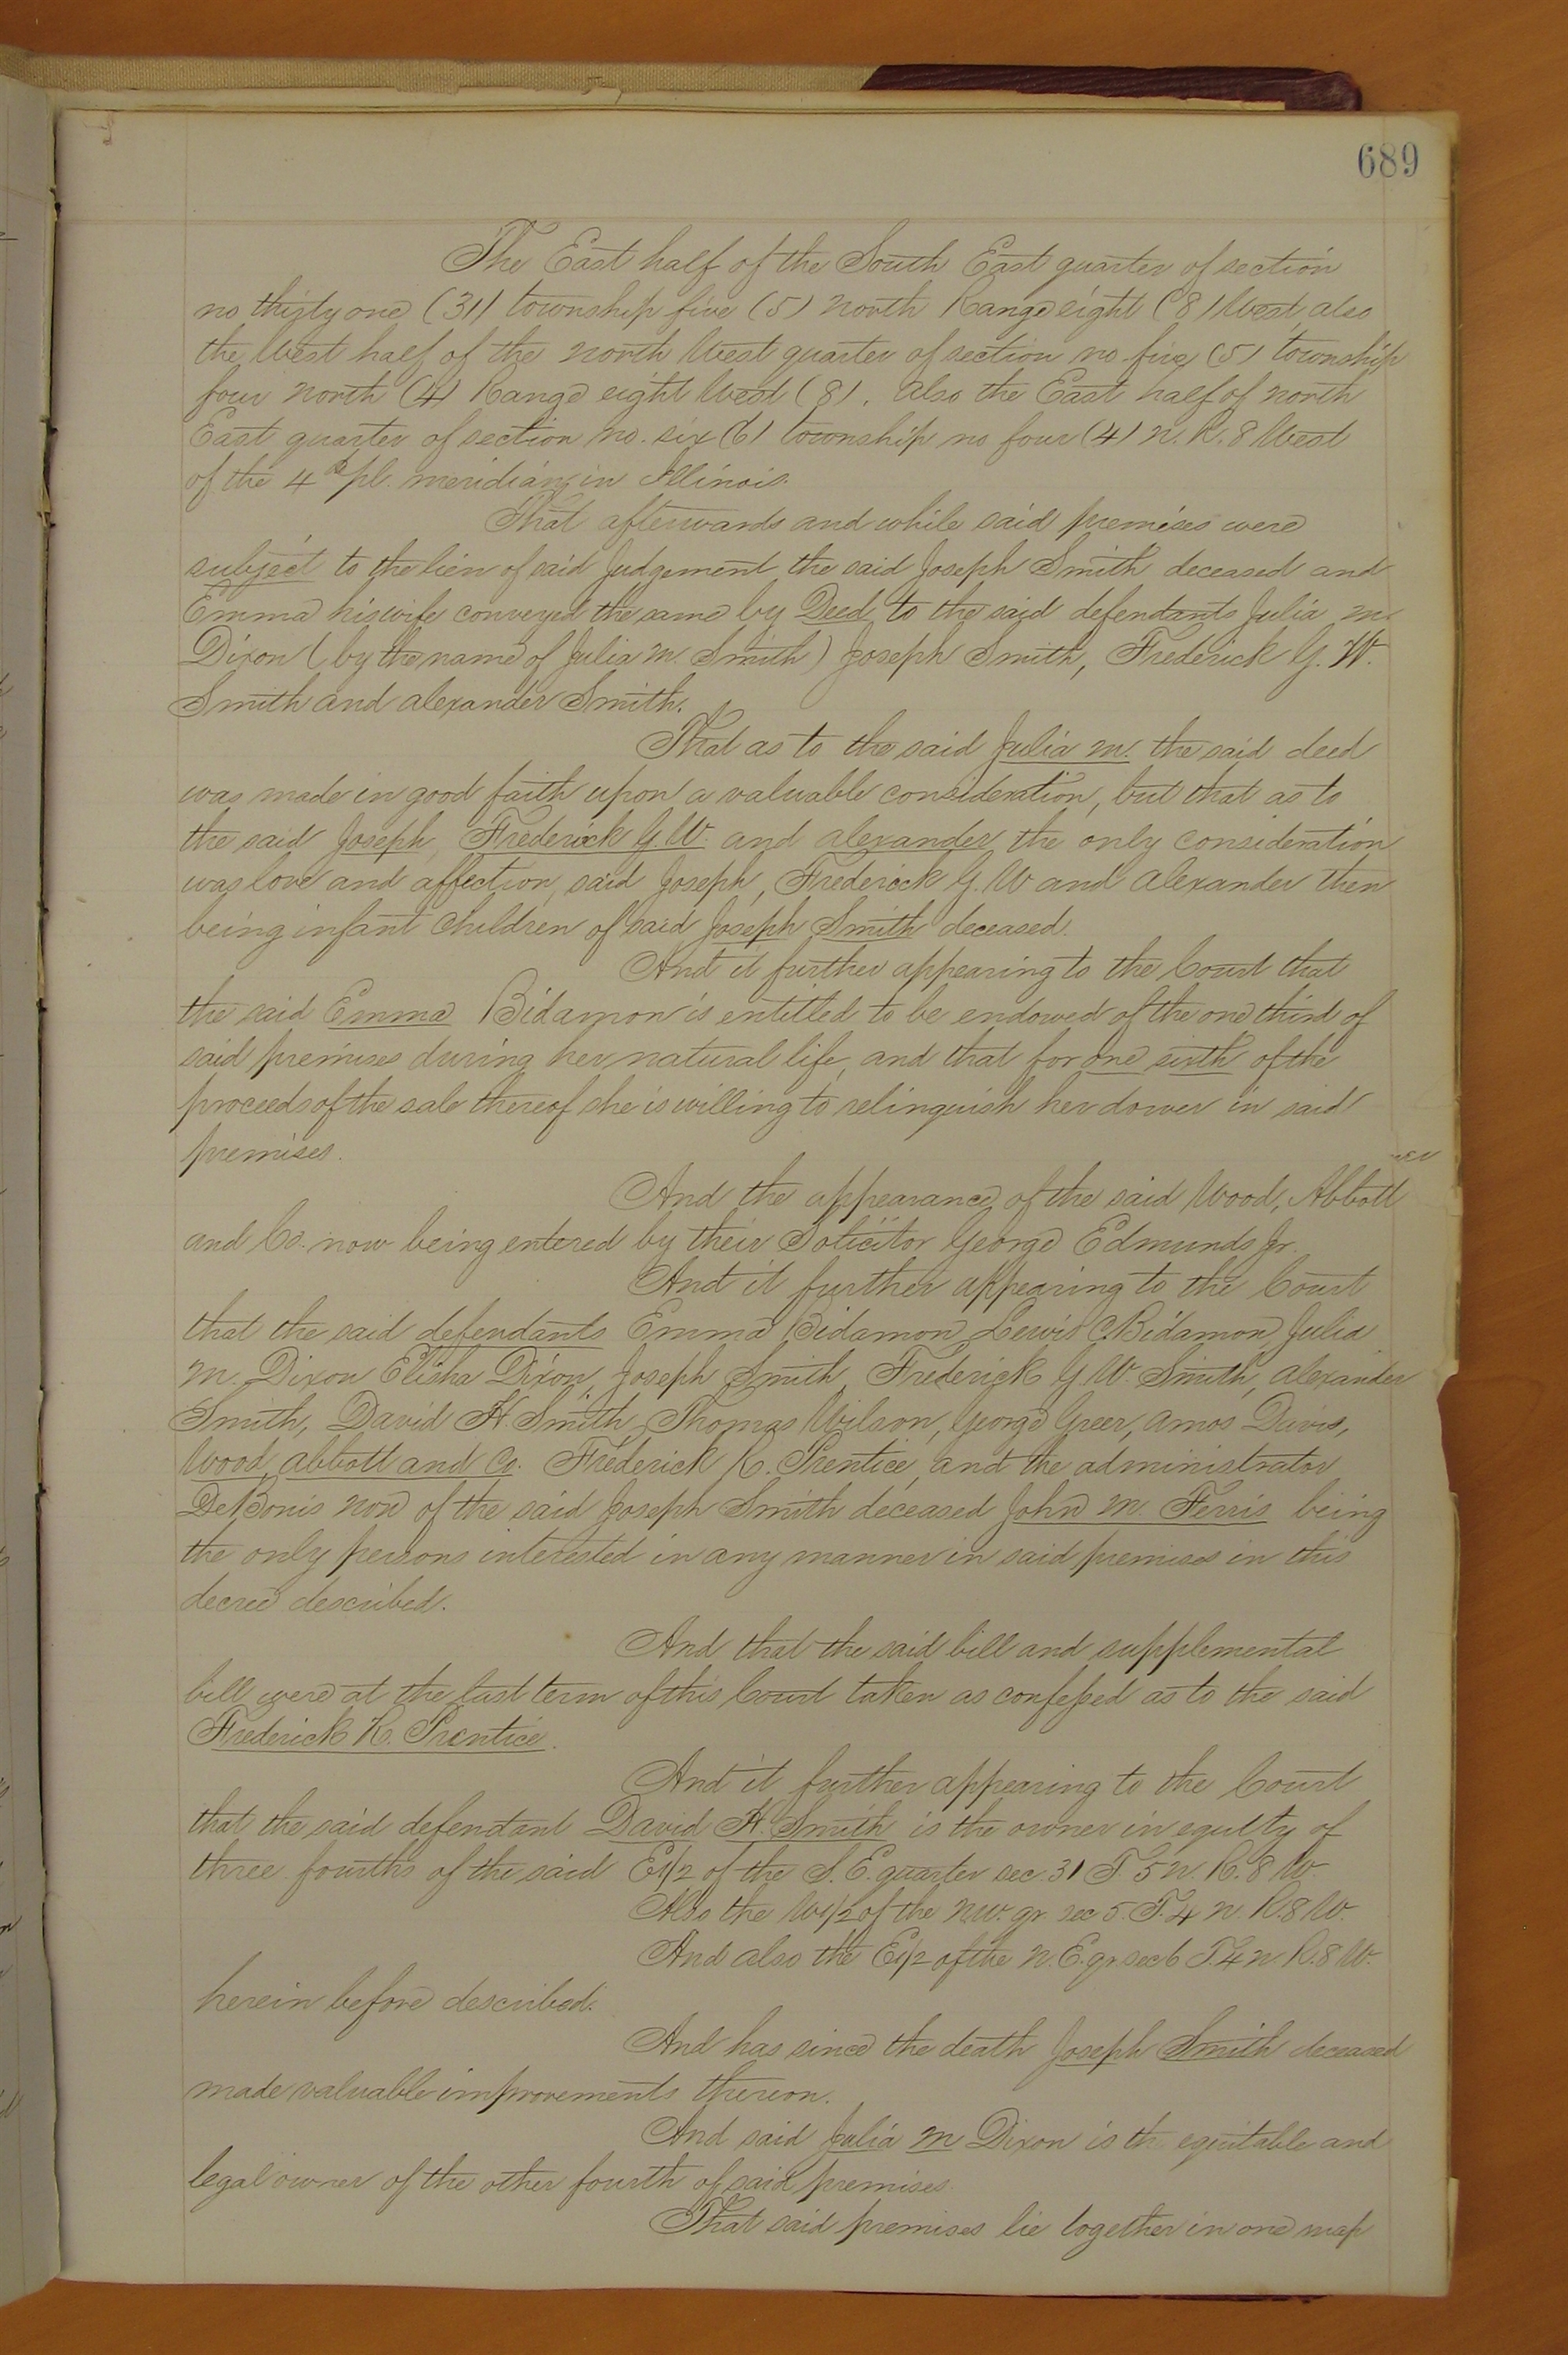 689
The East half of the South East quarter of section
no thirty one (31) township five (5) north Range eight (8) West, also
the West half of the north West quarter of section no five (5) township
four north (4) Range eight West (8). Also the East half of north
East quarter of section no. six (6) township no four (4) N. R. 8 West
of the 4th pl. meridian, in Illinois.
That afterwards and while said premises were
subject to the lien of said Judgement the said Joseph Smith deceased and
Emma his wife conveyed the same by Deed to the said defendants Julia M.
Dixon (by the name of Julia M. Smith) Joseph Smith, Frederick G. W.
Smith and Alexander Smith.
That as to the said Julia M. the said deed
was made in good faith upon a valuable consideration, but that as to
the said Joseph, Frederick G. W. and Alexander, the only consideration
was love and affection, said Joseph, Frederick G. W and Alexander then
being infant children of said Joseph Smith deceased.
And it further appearing to the Court that
the said Emma Bidamon is entitled to be endowed of the one third of
said premises during her natural life, and that for one sixth of the
proceeds of the sale thereof she is willing to relinquish her dower in said
premises.
And the appearance of the said Wood, Abbott
and Co. now being entered by their Solicitor George Edmunds Jr.
And it further appearing to the Court
that the said defendants Emma Bidamon, Lewis C. Bidamon, Julia
M. Dixon Elisha Dixon, Joseph Smith, Frederick G. W. Smith, Alexander
Smith, David H. Smith, Thomas Wilson, George Greer, Amos Davis,
Wood, Abbott and Co. Frederick R. Prentice, and the administrator
De Bonis non of the said Joseph Smith deceased John M. Ferris being
the only persons interested in any manner in said premises in this
decree described.
And that the said bill and supplemental
bill were at the last term of this Court taken as confessed as to the said
Frederick R. Prentice.
And it further appearing to the Court
that the said defendant David H. Smith is the owner in equity of
three fourths of the said E1/2 of the S. E. quarter sec. 31 T 5 N. R. 8 W.
Also the W1/2 of the N.W. qr. sec 5. T. 4 N. R. 8 W.
And also the E1/2 of the N. E. qr sec 6 T. 4 N. R. 8 W.
herein before described.
And has since the death Joseph Smith deceased
made valuable improvements thereon.
And said Julia M Dixon is th equitable and
legal owner of the other fourth of said premises.
That said premises lie together in one map